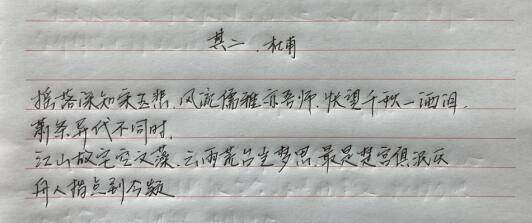 其二.杜甫
摇落深知宋玉悲.风流儒雅亦吾师.怅望千秋一洒泪.
萧条异代不同时.
江山故宅空文藻.云雨荒台岂梦思.最是楚宫俱泯灭
舟人指点到今疑